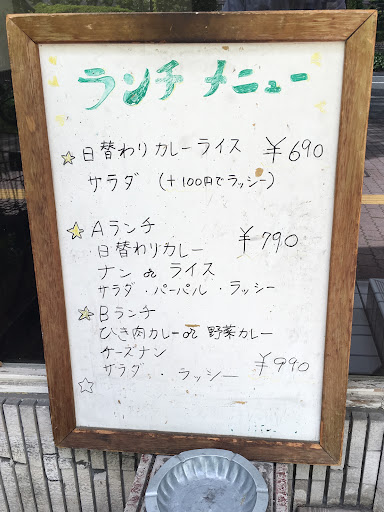 ランチ メニュー
日替わりカレーライス ￥690
サラダ (+100円でラッシー)
Aランチ ￥790
日替わりカレー
ナン or ライス
サラダ・パーパル・ラッシー
Bランチ
ひき肉カレー or 野菜カレー
チーズナン ￥990
サラダ . ラッシー